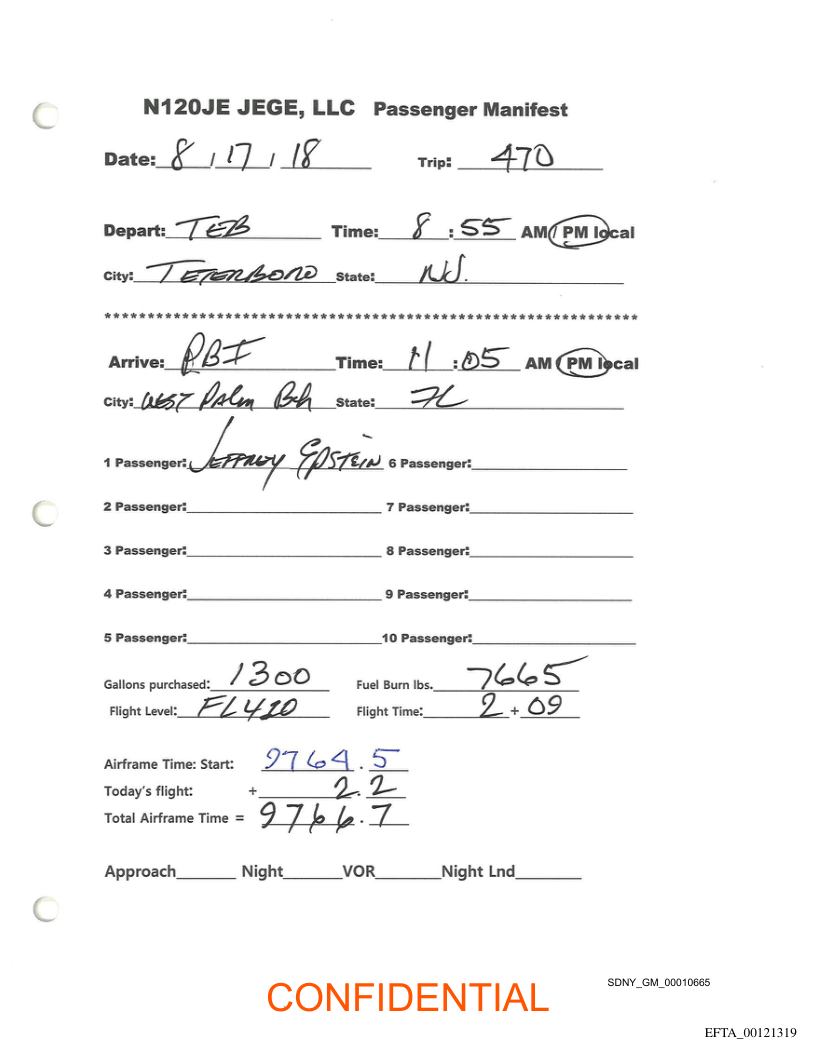 N120JE JEGE, LLC Passenger Manifest
Date: 8 / 17 / 18 Trip: 470
Depart: TEB Time: 8 : 55 AM / PM local
City: TETERBORO State: NJ.
*************************************************************
Arrive: PBI Time: 11 : 05 AM / PM local
City: WEST PALM Bch State: FL
1 Passenger: JEFFREY EPSTEIN 6 Passenger:
2 Passenger: 7 Passenger:
3 Passenger: 8 Passenger:
4 Passenger: 9 Passenger:
5 Passenger: 10 Passenger:
Gallons purchased: 1300 Fuel Burn lbs. 7665
Flight Level: FL410 Flight Time: 2 + 09
Airframe Time: Start: 9764.5
Today's flight: + 2.2
Total Airframe Time = 9766.7
Approach Night VOR Night Lnd
CONFIDENTIAL
SDNY_GM_00010665
EFTA_00121319